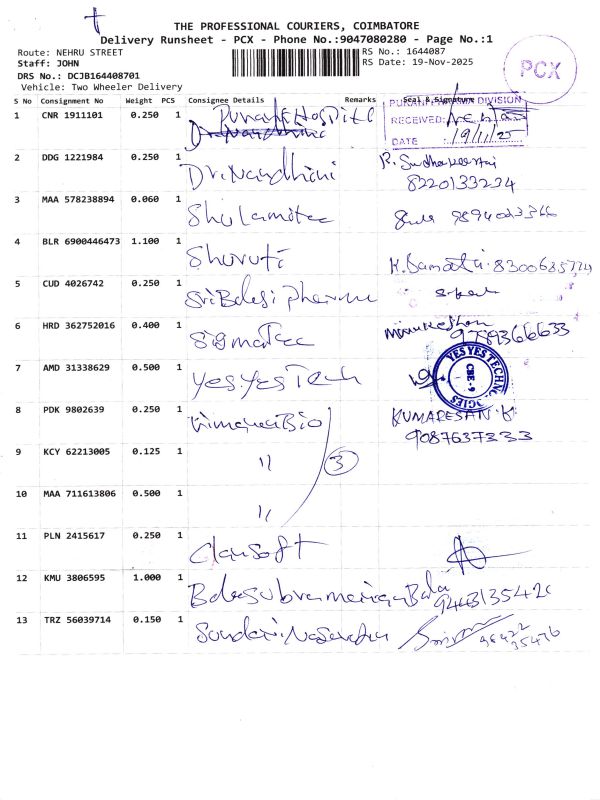 THE PROFESSIONAL COURIERS, COIMBATORE
Delivery Runsheet - PCX - Phone No.:9047080280 - Page No.:1
Route: NEHRU STREET
RS No.: 1644087
Staff: JOHN
RS Date: 19-Nov-2025
DRS No.: DCJB164408701
Vehicle: Two Wheeler Delivery
PCX
S No Consignment No Weight PCS Consignee Details Remarks Seal & Signature
DIVISION
RECEIVED:
DATE : 19/11/25
1 CNR 1911101 0.250 1
2 DDG 1221984 0.250 1 Dr.Nandhini
8220133234
3 MAA 578238894 0.060 1 Shulamitee
4 BLR 6900446473 1.100 1 Shuruti
5 CUD 4026742 0.250 1 Sri Balaji pharma
6 HRD 362752016 0.400 1 Sigmatec
9789366633
7 AMD 31338629 0.500 1 YesYesTech
YES YES TECHNOLOGIES
CBE-9
8 PDK 9802639 0.250 1 KUMARESAN.K
9087637333
9 KCY 62213005 0.125 1 " 3
10 MAA 711613806 0.500 1 "
11 PLN 2415617 0.250 1 Clansoft
12 KMU 3806595 1.000 1 Balasubramaniga Bala
13 TRZ 56039714 0.150 1